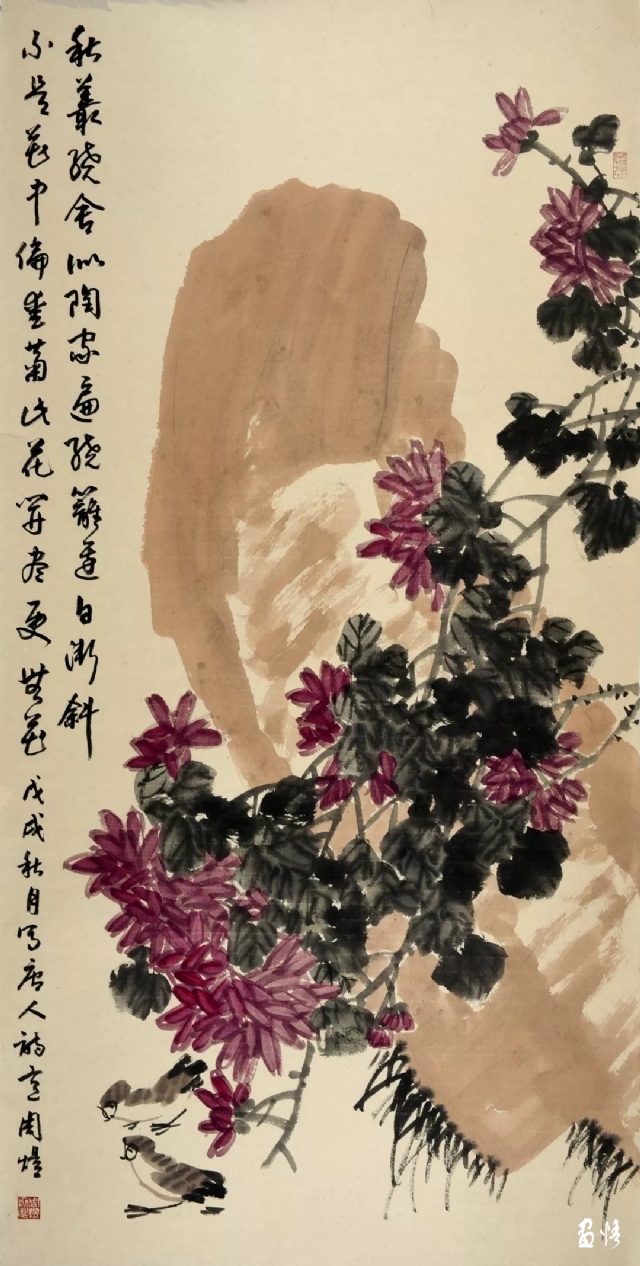 秋叢繞舍似陶家遍繞籬邊日漸斜
不是花中偏愛菊此花開盡更無花 戊戌秋月寫唐人詩意周